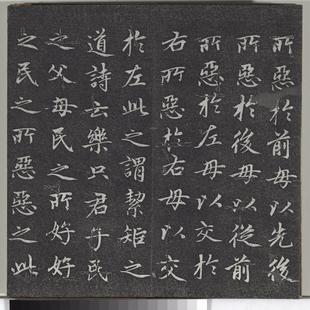 所惡於前毋以先後
所惡於後毋以從前
所惡於左毋以交於
右所惡於右毋以交
於左此之謂絜矩之
道詩云樂只君子民
之父母民之所好好
之民之所惡惡之此